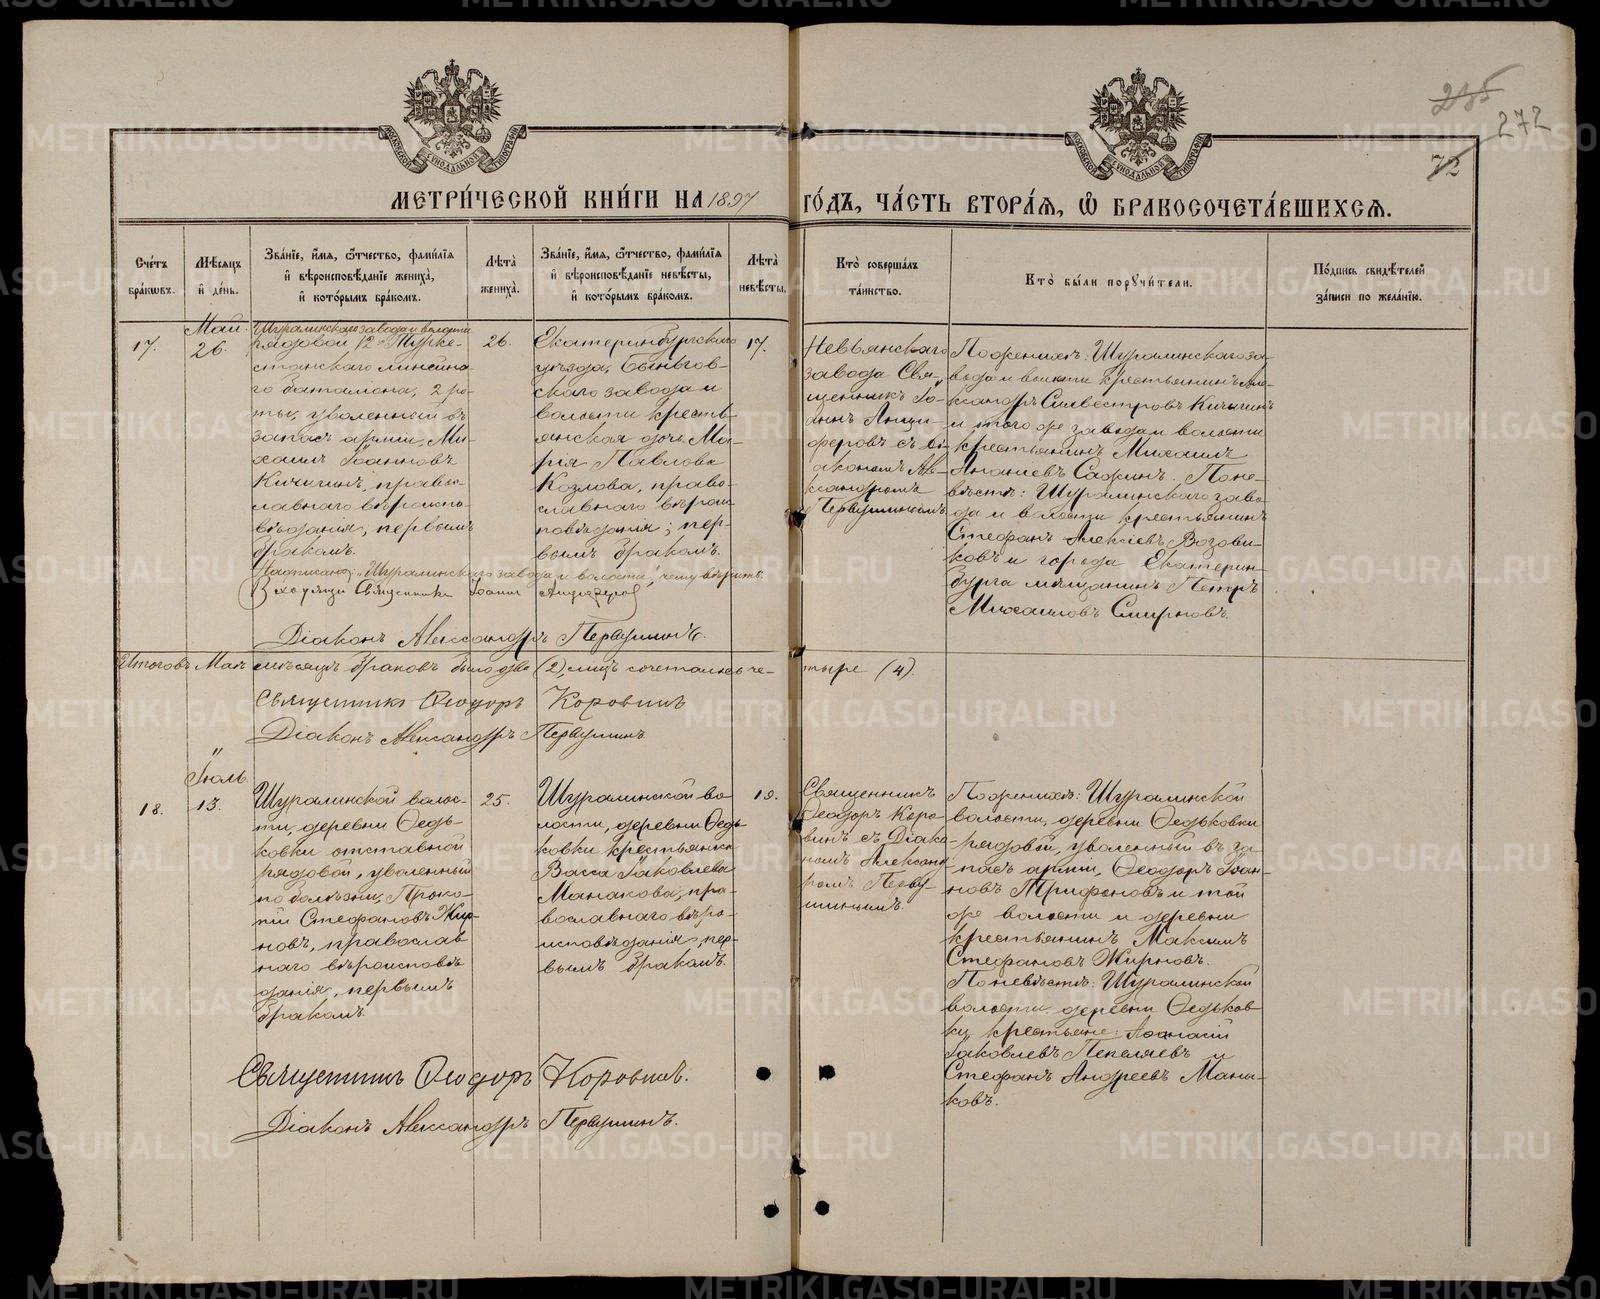 235
272
72
МЕТРИ́ЧЕСКОЙ КНИ́ГИ НА 1897 ГО́ДЪ, ЧА́СТЬ ВТОРА́Я, Ѽ БРАКОСОЧЕТА́ВШИХСЯ.
МОСКОВСКОЙ СѴНОДАЛЬНОЙ ТИПОГРАФІИ
МОСКОВСКОЙ СѴНОДАЛЬНОЙ ТИПОГРАФІИ
Сче́тъ
бра́кѡвъ.
Мѣ́сяцъ
и҆ де́нь.
Зва́нїе, и҆́мя, ѻ҆́тчество, фами́лїя
и҆ вѣроисповѣ́данїе жениха̀,
и҆ кото́рымъ бра́комъ.
Лѣ́та̀
жениха̀.
Зва́нїе, и҆́мя, ѻ҆́тчество, фами́лїя
и҆ вѣроисповѣ́данїе невѣ́сты,
и҆ кото́рымъ бра́комъ.
Лѣ́та̀
невѣ́сты.
Кто̀ соверша́лъ
та́инство.
Кто̀ бы́ли порꙋчи́тели.
По́дпись свидѣ́телей
за́писи по жела́нїю.
17.
Май.
26.
Шуралинскаго завода и волости
рядовой 12го Турке-
станскаго линейна-
го баталіона, 2 ро-
ты, уволенный въ
запасъ арміи, Ми-
хаилъ Іоанновъ
Кичигинъ, право-
славнаго вѣроиспо-
вѣданія, первымъ
бракомъ.
26.
Екатеринбургскаго
уѣзда, Быньгов-
скаго завода и
волости кресть-
янская дочь Ма-
рія Павлова
Козлова, право-
славнаго вѣроис
повѣданія; пер-
вымъ бракомъ.
17.
Невьянскаго
завода Свя-
щенникъ Іо-
аннъ Анци-
феровъ съ ді-
акономъ Але-
ксандромъ
Первушинымъ
По женихѣ: Шуралинскаго за-
вода и волости крестьянинъ Але-
ксандръ Сильвестровъ Кичигинъ
и того же завода и волости
крестьянинъ Михаилъ
Ананіевъ Сафинъ. По не-
вѣстѣ: Шуралинскаго заво-
да и волости крестьянинъ
Стефанъ Алексіевъ Возови-
ковъ и города Екатерин-
бурга мѣщанинъ Петръ
Михаиловъ Смирновъ.
Надписано: „Шуралинскаго завода и волости", чему вѣрить.
Священникъ Іоаннъ Анциферовъ
Діаконъ Александръ Первушинъ.
Итого въ Маѣ мѣсяцѣ браковъ было два (2), лицъ сочетались че-
тыре (4).
Священникъ Ѳеодоръ Коровинъ
Діаконъ Александръ Первушинъ
18.
Іюль.
13.
Шуралинской волос-
ти, деревни Ѳедь-
ковки отставной
рядовой, уволенный
по болѣзни, Проко-
пій Стефановъ Жир-
новъ, православ
наго вѣроисповѣ
данія, первымъ
бракомъ.
25.
Шуралинской во
лости, деревни Ѳедь
ковки крестьянка
Васса Іаковлева
Манакова, пра-
вославнаго вѣро-
исповѣданія, пер-
вымъ бракомъ.
19.
Священникъ
Ѳеодоръ Коро-
винъ съ Діако
номъ Александ
ромъ Перву-
шинымъ.
По женихѣ: Шуралинской
волости, деревни Ѳедьковки
рядовой, уволенный въ за-
пасъ арміи, Ѳеодоръ Іоан-
новъ Трифоновъ и той
же волости и деревни
крестьянинъ Максимъ
Стефановъ Жирновъ.
По невѣстѣ: Шуралинской
волости, деревни Ѳедьков-
ки, крестьяне: Аѳанасій
Іаковлевъ Пепеляевъ и
Стефанъ Андреевъ Мана-
ковъ.
Священникъ Ѳеодоръ Коровинъ.
Діаконъ Александръ Первушинъ.
METRIKI.GASO-URAL.RU